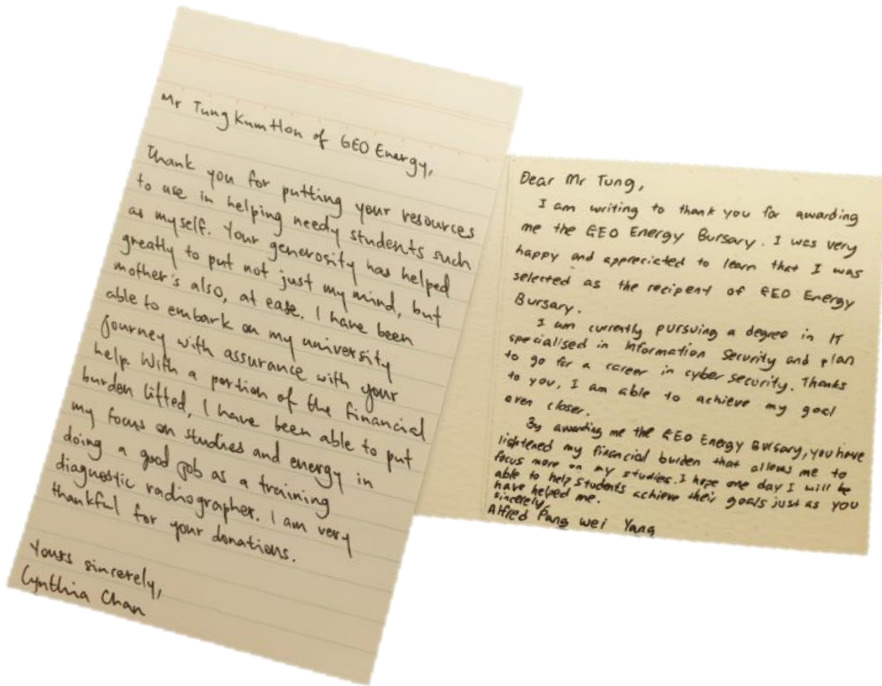 Mr Tung Kum Hon of GEO Energy,
Thank you for putting your resources
to use in helping needy students such
as myself. Your generosity has helped
greatly to put not just my mind, but
mother's also, at ease. I have been
able to embark on my university
journey with assurance with your
help. With a portion of the financial
burden lifted, I have been able to put
my focus on studies and energy in
doing a good job as a training
diagnostic radiographer. I am very
thankful for your donations.
Yours sincerely,
Cynthia Chan
Dear Mr Tung,
I am writing to thank you for awarding
me the GEO Energy Bursary. I was very
happy and appreciated to learn that I was
selected as the recipient of GEO Energy
Bursary.
I am currently pursuing a degree in IT
specialised in Information Security and plan
to go for a career in cyber security. Thanks
to you, I am able to achieve my goal
even closer.
By awarding me the GEO Energy Bursary, you have
lightened my financial burden that allows me to
focus more on my studies. I hope one day I will be
able to help students achieve their goals just as you
have helped me.
Sincerely,
Alfred Pang Wei Yang